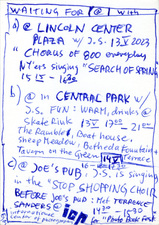 WAITING FOR @ 1 with
a) @ LINCOLN CENTER
PLAZA w/ J.S. 13 V 2023
"CHORUS OF 800 everyday
NY'ers singing "SEARCH OF SPRING
15 - 16
b) @ in CENTRAL PARK w/
J.S. FUN: WARM, drinks @
Skate Rink 13 V 17 - 21
The Ramble, Boat house,
Sheep Meadow, Bethesda Fountain +
Tavern on the Green 14 V Terrace
c) @ JOE'S PUB: J.S. is singing
in the "STOP SHOPPING CHOIR
BEFORE JOE'S PUB: Met TERRACE
SANDERS @ ICP 14 - 16
international
Centre of Photography for "Photo Book Fest